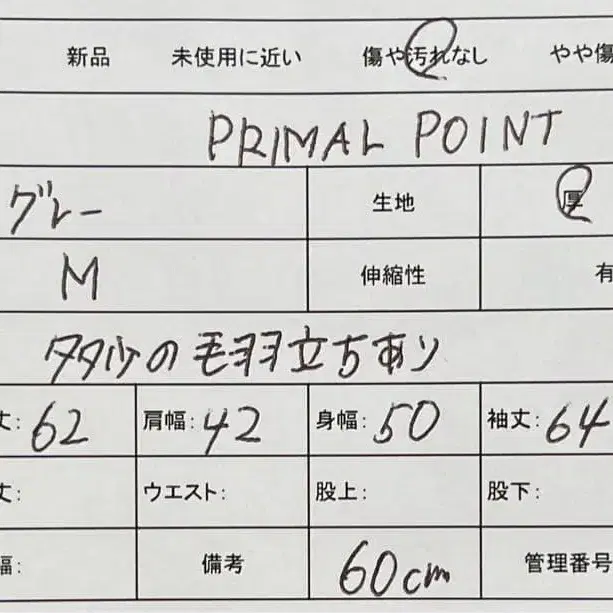 新品 未使用に近い 傷や汚れなし やや傷
PRIMAL POINT
グレー 生地 厚
M 伸縮性 有
タタかの毛羽立ちあり
丈: 62 肩幅: 42 身幅: 50 袖丈: 64
丈: ウエスト: 股上: 股下:
幅: 備考 60cm 管理番号